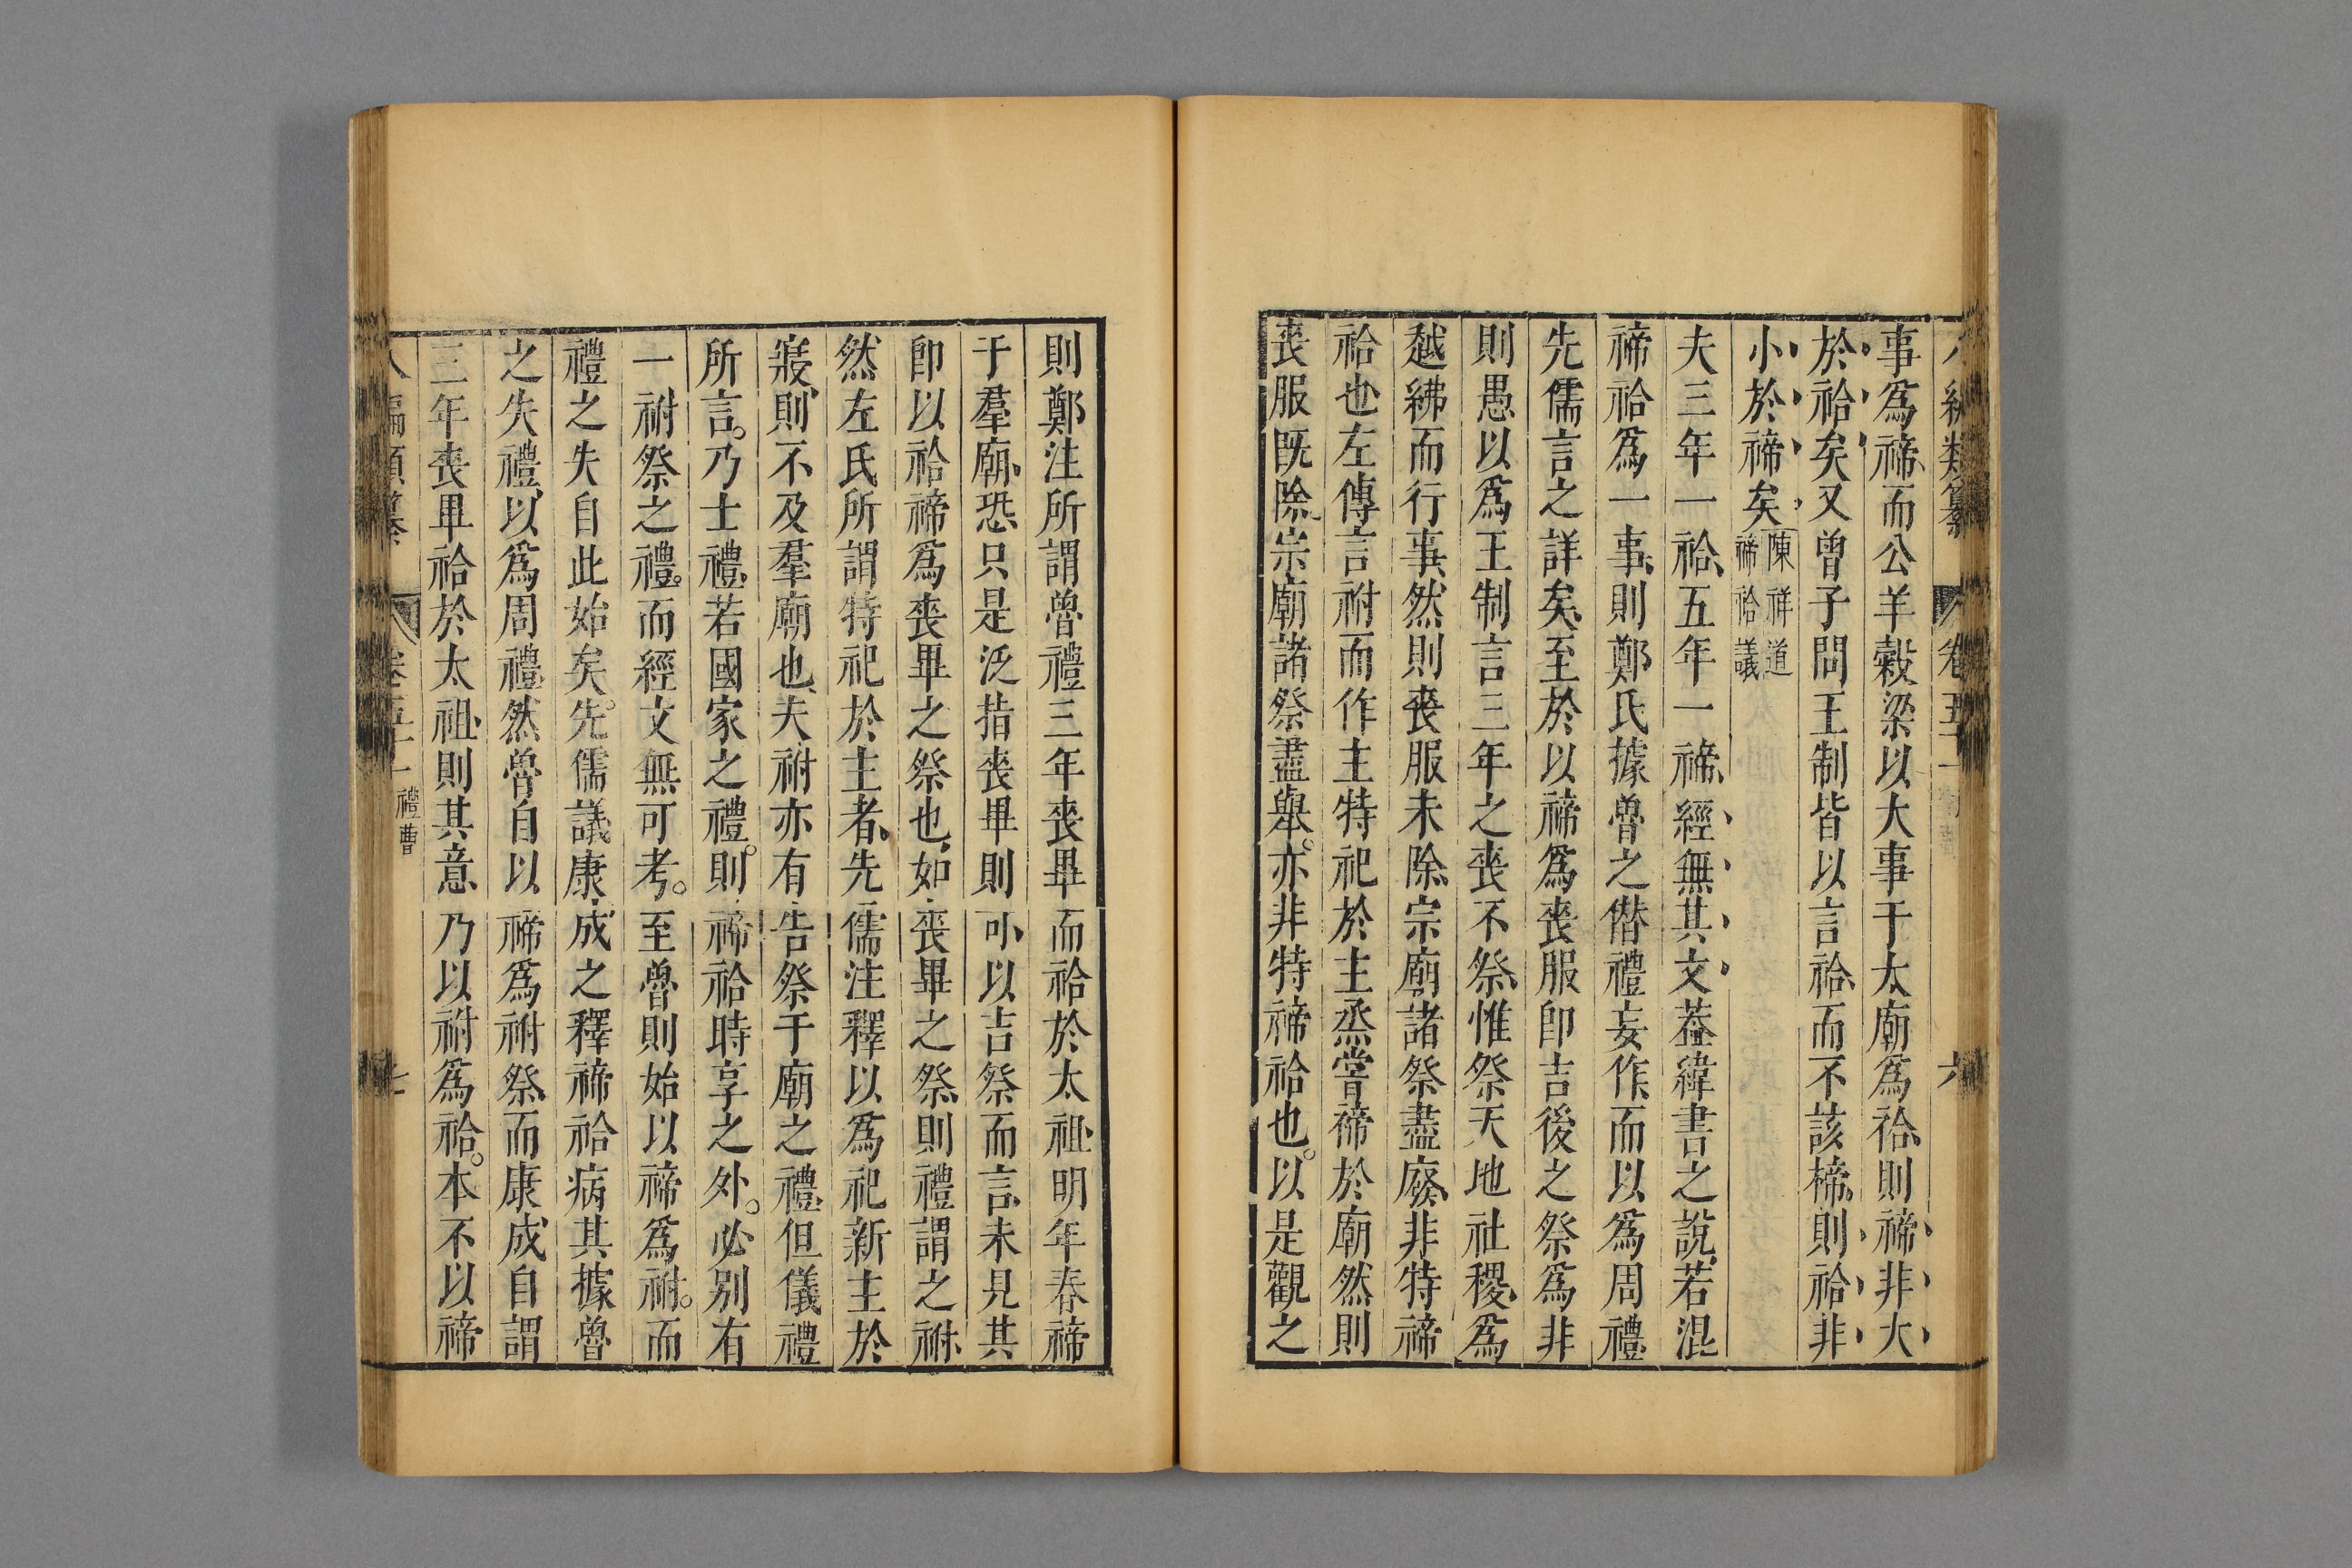 事爲禘、而公羊糓梁以大事于太廟爲祫、則禘非大
於祫矣、又曾子問王制皆以言祫、而不該禘。則祫非
小於禘矣、陳祥道禘祫議
夫三年一祫、五年一禘、經無其文葢緯書之說、若混
禘祫爲一事、則鄭氏據魯之僣禮妄作、而以爲周禮、
先儒言之詳矣、至於以禘爲喪服卽吉後之祭爲非
則愚以爲王制言三年之喪不祭、惟祭天地社稷、爲
越紼而行事、然則喪服未除、宗廟諸祭盡廢、非特禘
祫也、左傳言祔而作主特祀於主烝嘗禘於廟然則
喪服旣除、宗廟諸祭盡舉。亦非特禘祫也。以是觀之
則鄭注所謂魯禮三年喪畢而祫於太祖、明年春禘
于羣廟、恐只是泛指喪畢則可以吉祭而言、未見其
卽以祫禘爲喪畢之祭也、如喪畢之祭、則禮謂之祔、
然左氏所謂特祀於主者、先儒注釋以爲祀新主於
寢、則不及羣廟也、夫祔亦有告祭于廟之禮、但儀禮
所言。乃士禮、若國家之禮。則禘祫時享之外。必別有
一祔祭之禮。而經文無可考。至魯則始以禘爲祔。而
禮之失自此始矣。先儒議康成之釋禘祫病其據魯
之失禮、以爲周禮、然魯自以禘爲祔祭、而康成自謂
三年喪畢祫於太祖、則其意乃以祔爲祫。本不以禘
禮曹
七